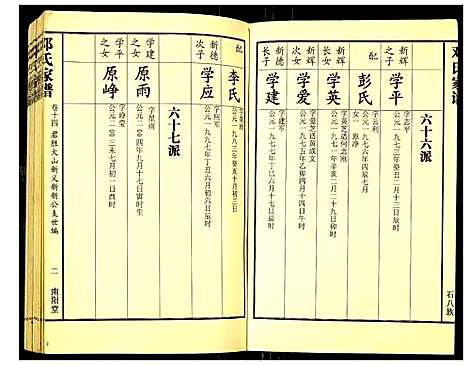 邓氏家谱
六十六派
新辉之子
学平
字志平
公元一九七三年癸丑二月十三日辰时
配
彭氏
公元一九七六年丙辰七月
女一 原净
新辉之女
学英
字英芝适何志刚
公元一九七一年辛亥二月二十九日卯时
新辉次女
学爱
字爱芝适黄成文
公元一九七五年乙卯四月十四日午时
新德长子
学建
字建军
公元一九七七年丁巳六月十六日辰时
石八族
配
李氏
公元一九八三年癸亥十月初三日
新德次子
学应
字应军
公元一九九七年丁丑六月初六日辰时
六十七派
学建之女
原雨
字星雨
公元二〇〇四年九月十七日寅时生
学平之女
原峥
字峥莹
公元二〇〇三未七月初一日酉时
邓氏家谱
卷十四
二
南阳堂